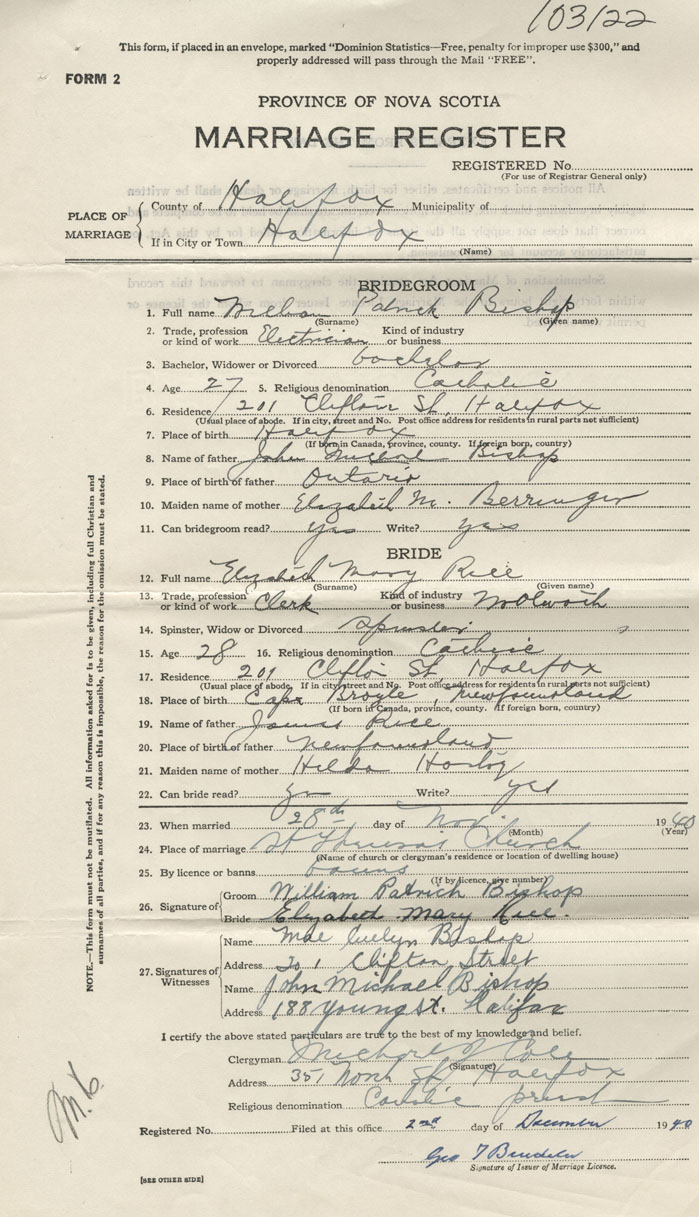 103122
This form, if placed in an envelope, marked "Dominion Statistics—Free, penalty for improper use $300," and
properly addressed will pass through the Mail "FREE".
FORM 2
PROVINCE OF NOVA SCOTIA
MARRIAGE REGISTER
REGISTERED No.
(For use of Registrar General only)
PLACE OF MARRIAGE
County of Halifax Municipality of
If in City or Town Halifax
(Name)
BRIDEGROOM
1. Full name William Patrick Bishop
(Surname) (Given name)
2. Trade, profession or kind of work Electrician Kind of industry or business
3. Bachelor, Widower or Divorced bachelor
4. Age 27 5. Religious denomination Catholic
6. Residence 201 Clifton St, Halifax
(Usual place of abode. If in city, street and No. Post office address for residents in rural parts not sufficient)
7. Place of birth Halifax
(If born in Canada, province, county. If foreign born, country)
8. Name of father John Bishop
9. Place of birth of father Ontario
10. Maiden name of mother Elizabeth M. Berringer
11. Can bridegroom read? yes Write? yes
BRIDE
12. Full name Elizabeth Mary Rice
(Surname) (Given name)
13. Trade, profession or kind of work Clerk Kind of industry or business Woolworth
14. Spinster, Widow or Divorced Spinster
15. Age 28 16. Religious denomination Catholic
17. Residence 201 Clifton St, Halifax
(Usual place of abode. If in city street and No. Post office address for residents in rural parts not sufficient)
18. Place of birth Cape Broyle, Newfoundland
(If born in Canada, province, county. If foreign born, country)
19. Name of father James Rice
20. Place of birth of father Newfoundland
21. Maiden name of mother Hilda
22. Can bride read? yes Write? yes
23. When married 28th day of Nov. 1940
(Month) (Year)
24. Place of marriage St Church
(Name of church or clergyman's residence or location of dwelling house)
25. By licence or banns banns
(If by licence, give number)
26. Signature of
Groom William Patrick Bishop
Bride Elizabeth Mary Rice.
27. Signatures of Witnesses
Name Mae Evelyn Bishop
Address 201 Clifton Street
Name John Michael Bishop
Address 188 Young St. Halifax
I certify the above stated particulars are true to the best of my knowledge and belief.
Clergyman Michael J Cole
(Signature)
Address 351 North St Halifax
Religious denomination Catholic priest
Registered No. Filed at this office 2nd day of December 1940
Geo T
Signature of Issuer of Marriage Licence.
[SEE OTHER SIDE]
NOTE.—This form must not be mutilated. All information asked for is to be given, including full Christian and
surnames of all parties, and if for any reason this is impossible, the reason for the omission must be stated.